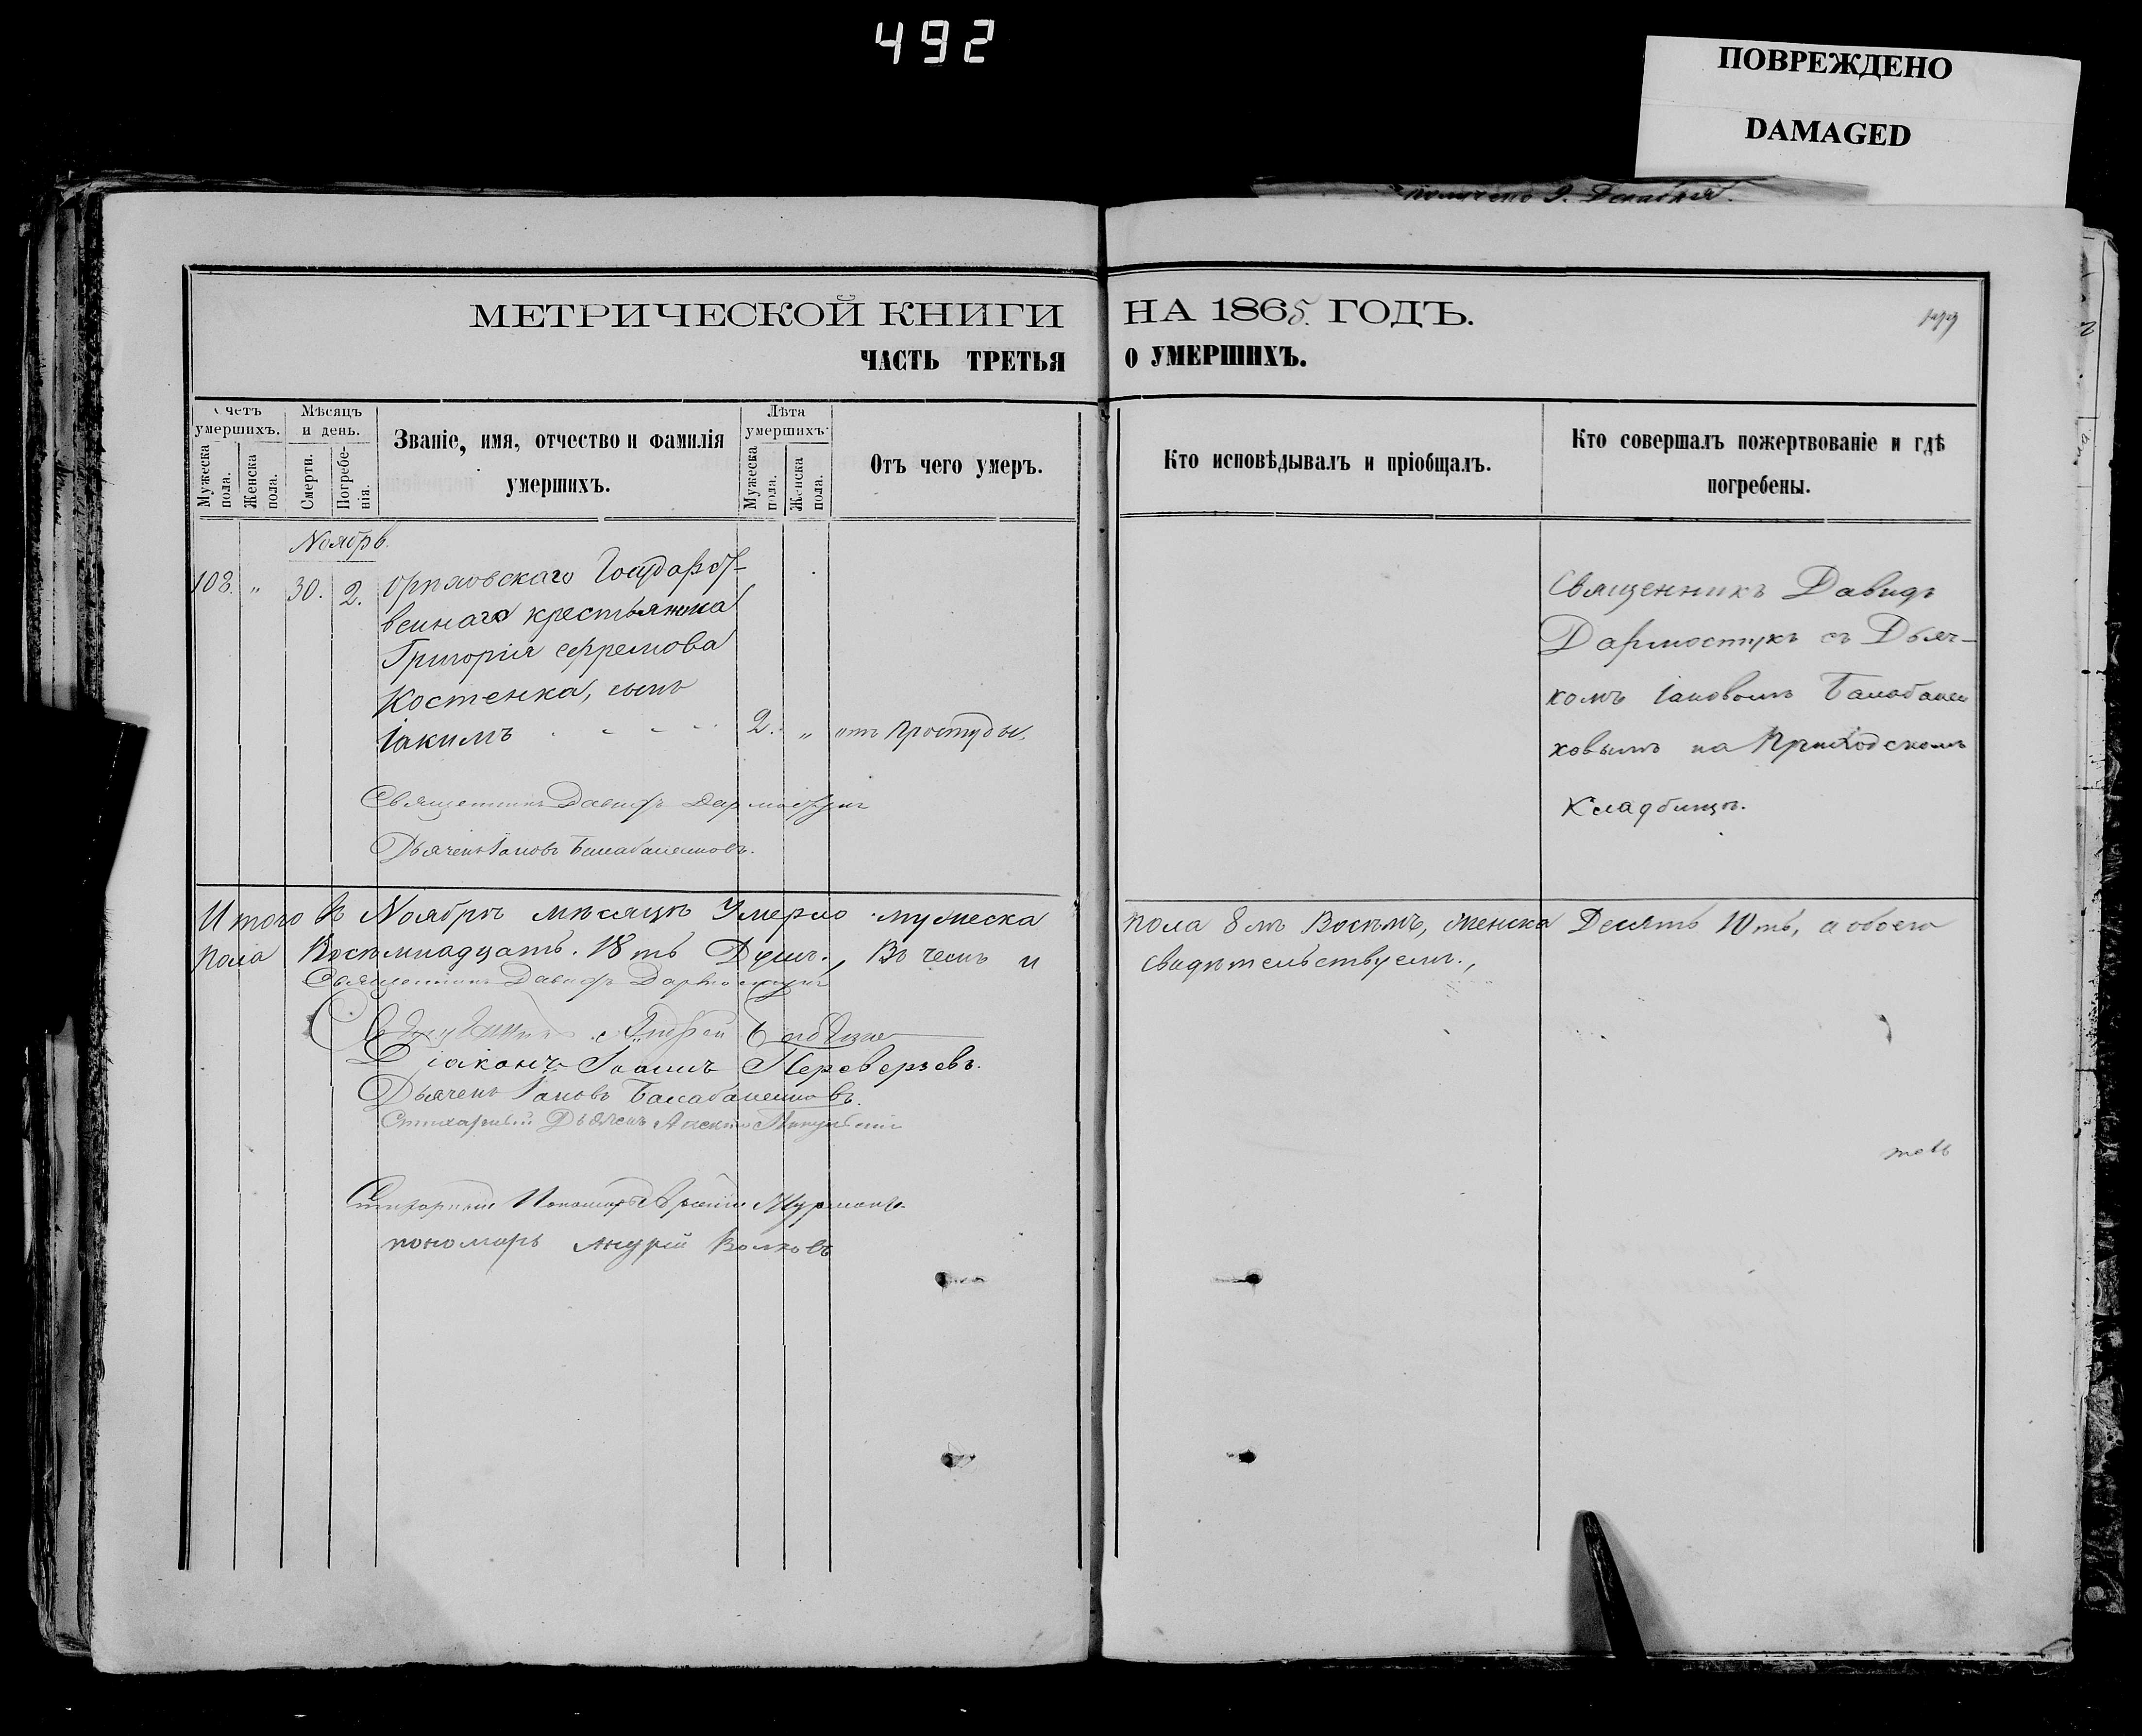 492
ПОВРЕЖДЕНО
DAMAGED
получено 9. Декабря.
МЕТРИЧЕСКОЙ КНИГИ НА 1865. ГОДЪ.
ЧАСТЬ ТРЕТЬЯ О УМЕРШИХЪ.
Счетъ умершихъ.
Мужеска пола.
Женска пола.
Мѣсяцъ и день.
Смерти.
Погребенія.
Званіе, имя, отчество и фамилія
умершихъ.
Лѣта умершихъ.
Мужеска пола.
Женска пола.
Отъ чего умеръ.
Кто исповѣдывалъ и пріобщалъ.
Кто совершалъ пожертвованіе и гдѣ
погребены.
Ноябрь.
108. " 30. 2. Государст-
веннаго крестьянина
Григорія Ефремова
Костенка, сынъ
Іакимъ 2. " отъ простуды.
Священникъ Давидъ
Дармостукъ съ Дьяч-
комъ Іаковомъ Балабанен
ковымъ на Приходскомъ
Кладбищѣ.
Священникъ Давидъ Дармостукъ
Дьячекъ Іаковъ Балабаненковъ.
Итого въ Ноябрѣ мѣсяцѣ Умерло мужеска пола 8мъ Восемъ, женска Десять 10ть, а обоего
пола Восемнадцать. 18ть Душъ., Въ чемъ и свидѣтельствуемъ.,
Священникъ Давидъ Дармостукъ
Андрей
Діаконъ Іоаннъ Переверзевъ.
Дьячекъ Іаковъ Балабаненковъ.
Стихарный Дьячекъ
Стихарный Пономарь
пономарь Андрей Волковъ